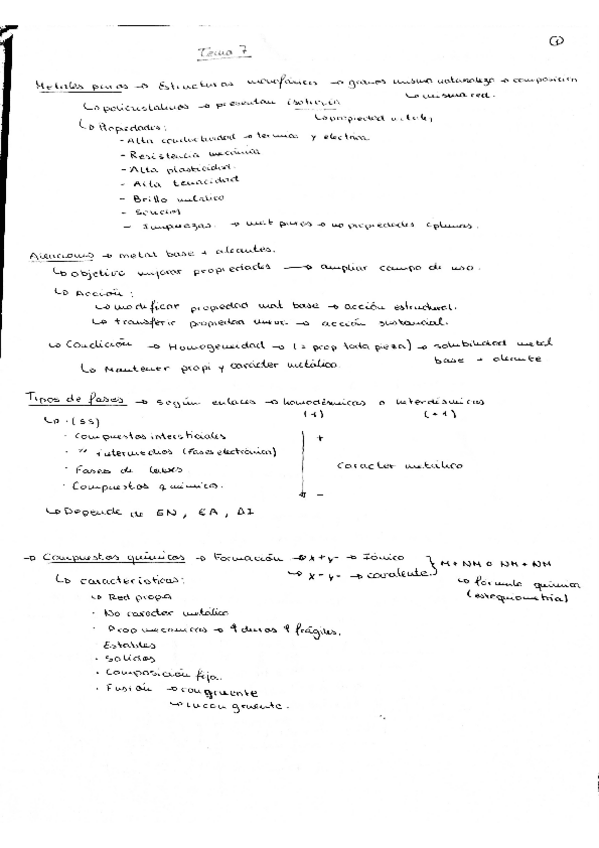 ①
Tema 7
Metales puros → Estructuras monofásicas → granos misma naturaleza → composición
↳ misma red.
↳ policristalinos → presentan isotropía
↳ propiedad
↳ Propiedades:
- Alta conductividad → térmica y eléctrica
- Resistencia mecánica
- Alta plasticidad.
- Alta tenacidad
- Brillo metálico
- Impurezas. → met puros → no propiedades
Aleaciones → metal base + aleantes.
↳ objetivo mejorar propiedades → ampliar campo de uso.
↳ Acción:
↳ modificar propiedad mat base → acción estructural.
↳ transferir propiedad → acción sustancial.
↳ Condición → Homogeneidad → (= prop toda pieza) → solubilidad metal
base + aleante
↳ Mantener propi y carácter metálico.
Tipos de fases → según enlaces → homodésmicas o heterodésmicas
(1) (+1)
↳ · (SS)
· Compuestos intersticiales +
· " intermedios (Fases electrónica)
· Fases de Laves. caracter metálico
· Compuestos químicos. -
↳ Depende de EN, EA, ΔI
→ Compuestos químicos → Formación → x+y- → Iónico
↳ x-y- → covalente. } M + NM o NM + NM
↳ fórmula química
(estequiometría)
↳ características:
↳ Red propia
· No caracter metálico
· Prop mecánicas → ↑ duros ↑ frágiles.
Estables
· Solidos
· Composición fija.
· Fusión → congruente
↳ incongruente.